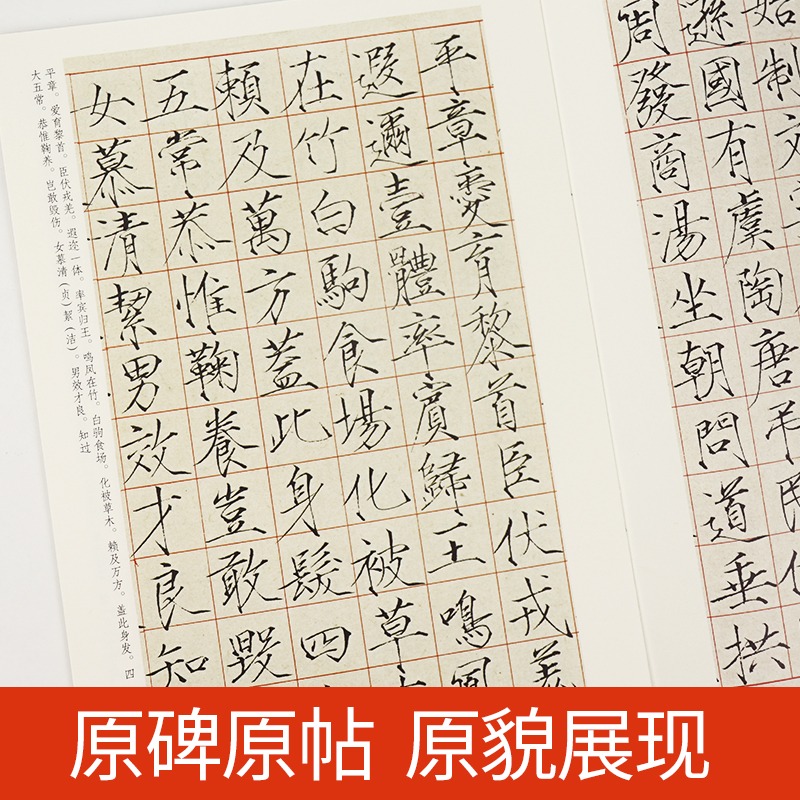 始制文
遜國有虞陶唐吊民
周發商湯坐朝問道垂拱
平章愛育黎首臣伏戎羌
遐邇壹體率賓歸王鳴鳳
在竹白駒食場化被草
賴及萬方蓋此身髮四
五常恭惟鞠養豈敢毀
女慕清絜男效才良知
平章。爱育黎首。臣伏戎羌。遐迩一体。率宾归王。鸣凤在竹。白驹食场。化被草木。赖及万方。盖此身发。四
大五常。恭惟鞠养。岂敢毁伤。女慕清（贞）絜（洁）。男效才良。知过
原碑原帖 原貌展现